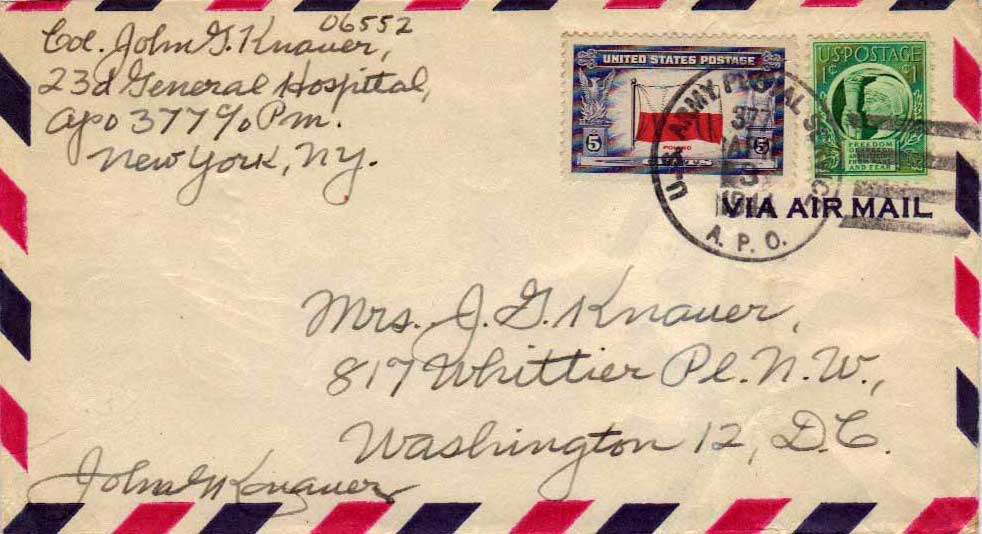 06552
Col. John G. Knauer,
23d General Hospital,
APO 377 c/o P.m.
New York, N.Y.
UNITED STATES POSTAGE
5 POLAND 5
CENTS
U.S. POSTAGE
1¢ ¢1
FREEDOM
OF SPEECH
AND RELIGION
FROM WANT
AND FEAR
U.S. ARMY POSTAL SERVICE
377
A.P.O.
VIA AIR MAIL
Mrs. J. G. Knauer,
817 Whittier Pl. N.W.,
Washington 12, D.C.
John G Knauer